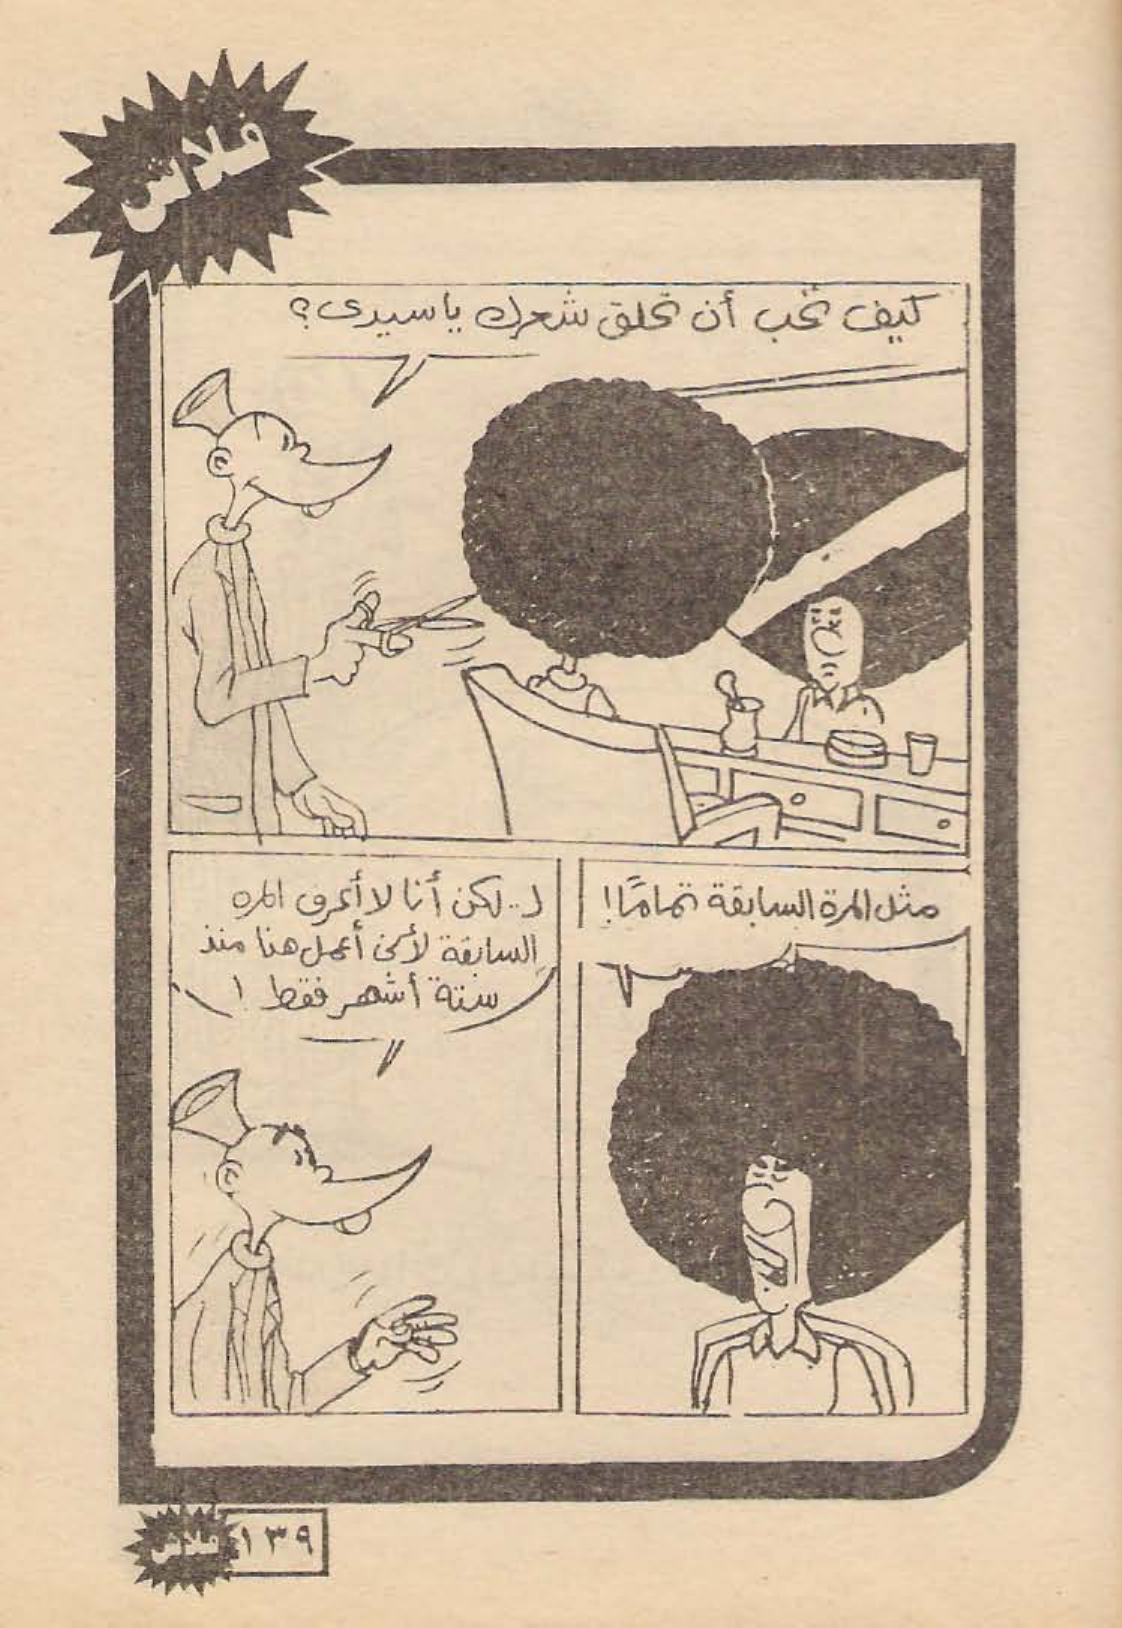 فلاش
كيف تحب أن تحلق شعرك ياسيدى؟
مثل المرة السابقة تمامًا!
لـ..لكن أنا لا أعرف المره
السابقة لأننى أعمل هنا منذ
ستة أشهر فقط !
١٣٩ فلاش